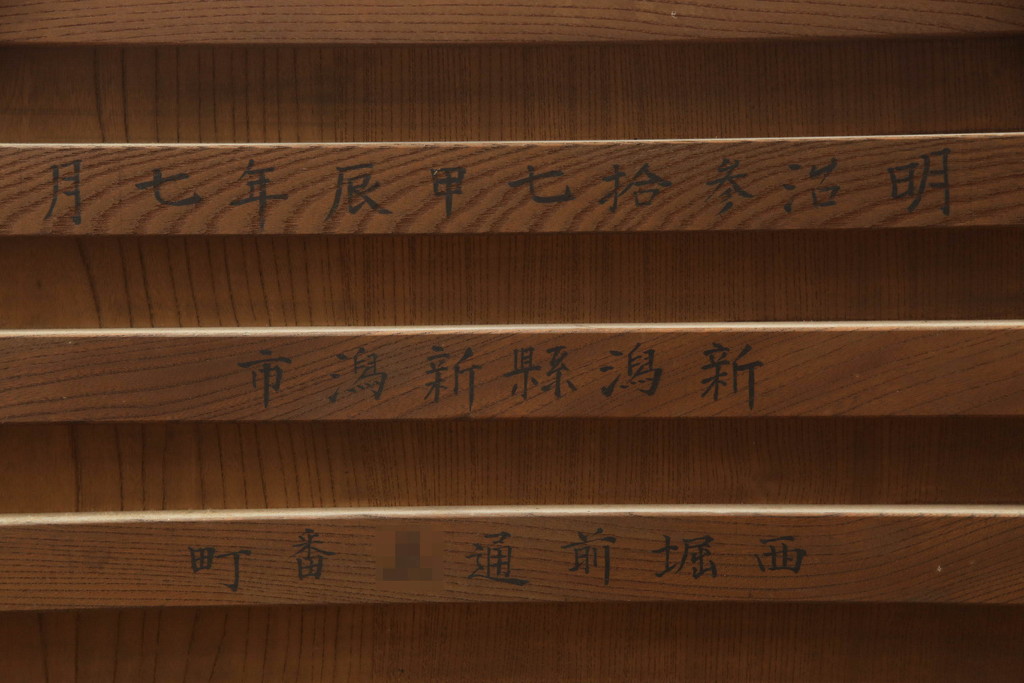 明治参拾七甲辰年七月
新潟縣新潟市
西堀前通番町